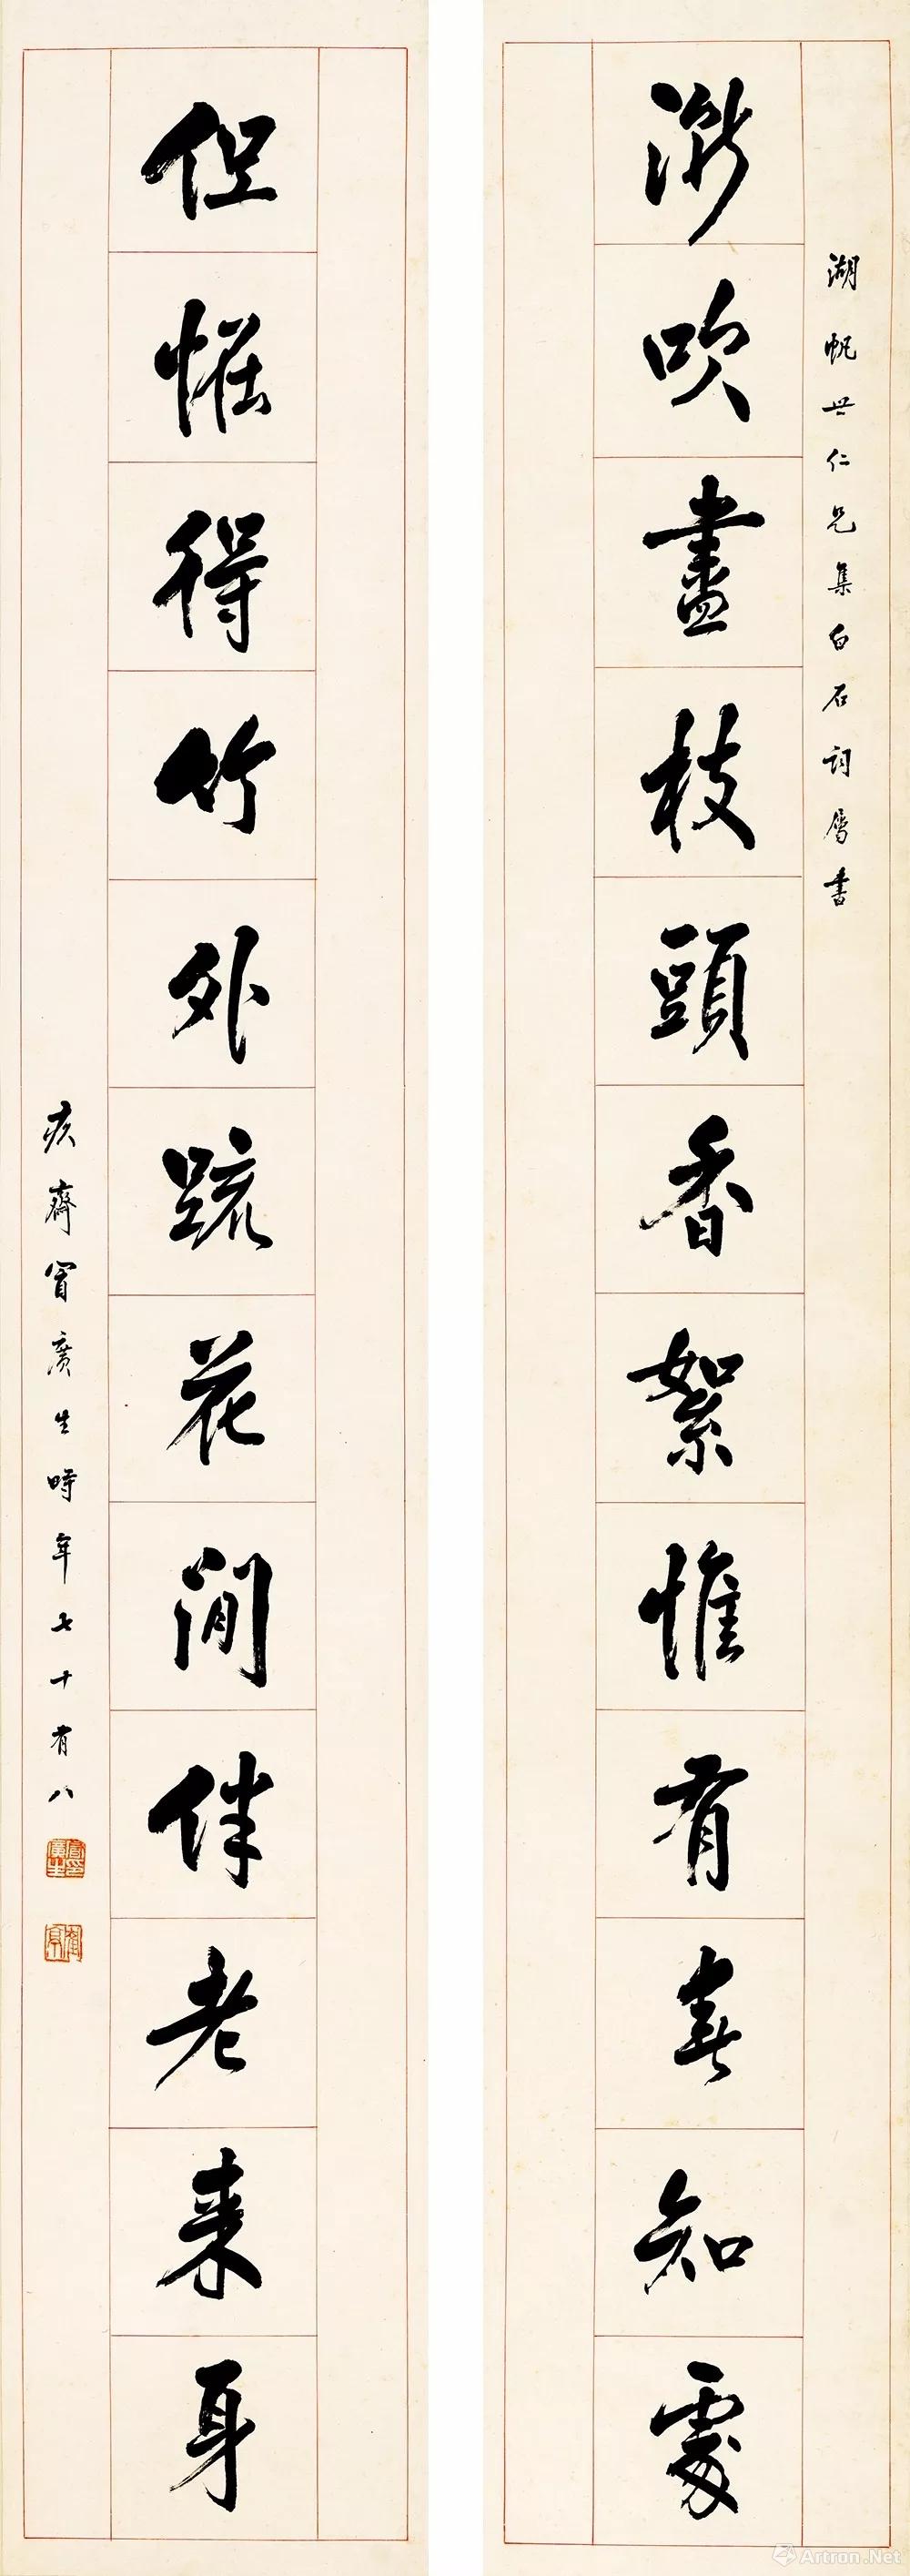 湖帆世仁兄集白石詞屬書
漸吹盡枝頭香絮惟有春知處
但恠得竹外䟽花閒伴老來身
疚齋冒廣生時年七十有八
冒廣生印
鶴亭
Artron.Net